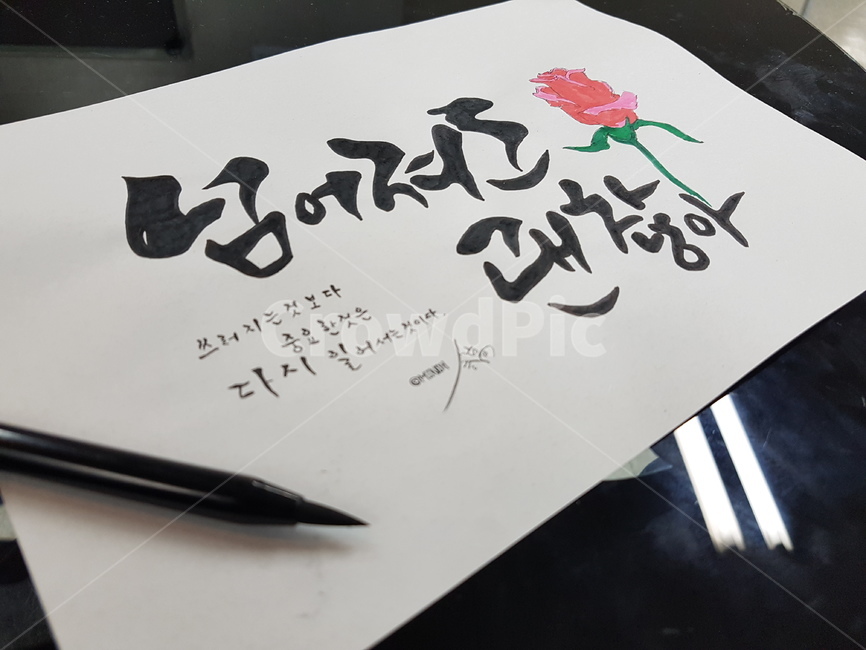 넘어져도
괜찮아
쓰러지는것보다
중요한것은
다시 일어서는것이다.
©MINJH
CrowdPic